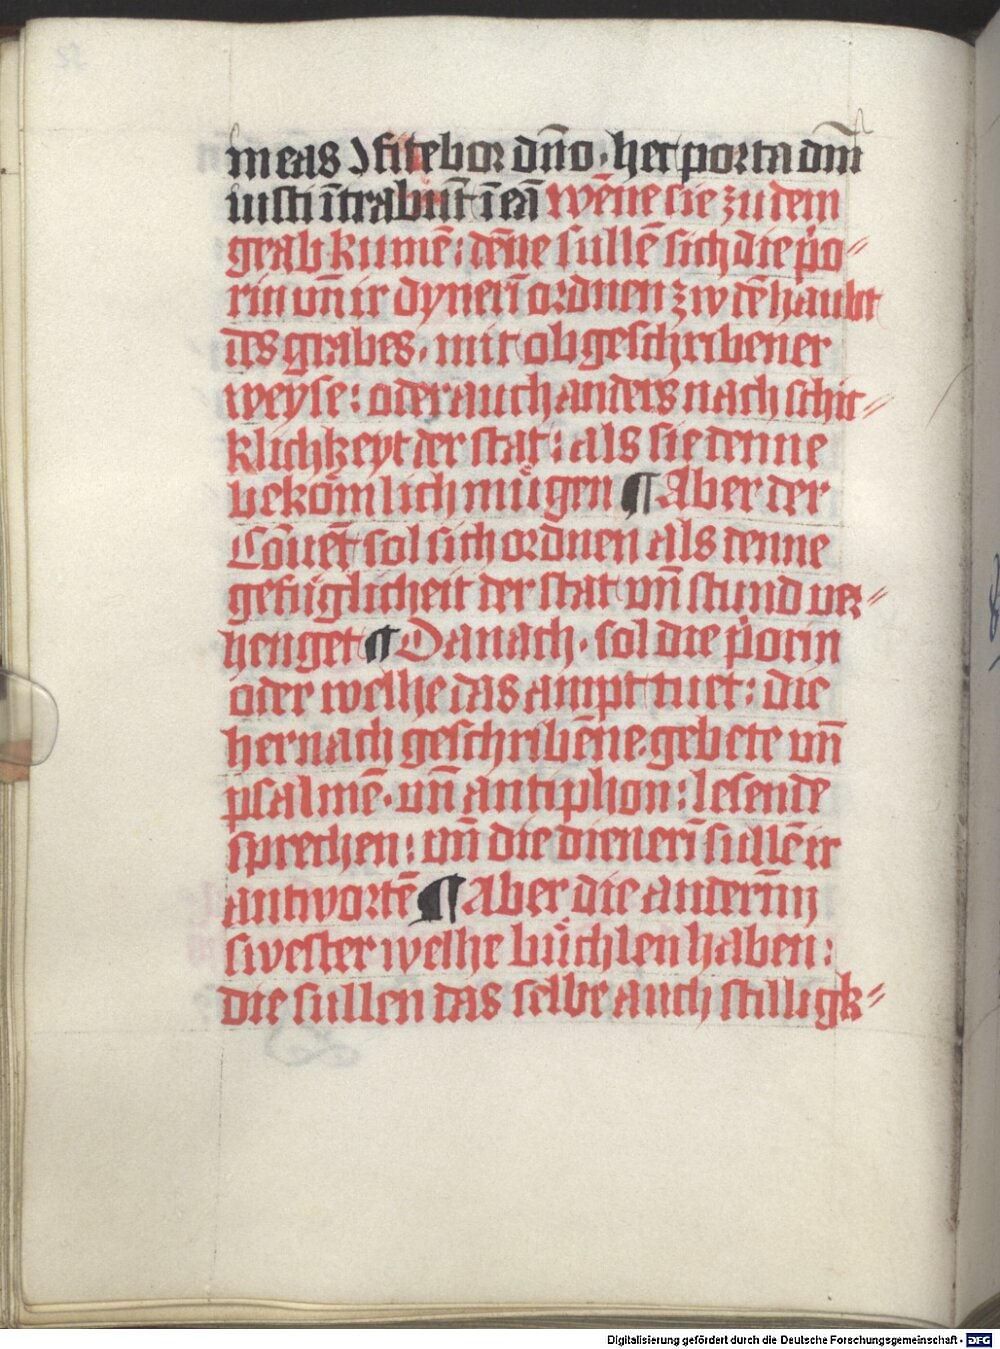 meas ɔfitebor dn̄o · hec porta dn̄i
iusti ītrabūt ī eā wēne sie zu dem
grab kumē : dēne sullē sich die p̓o〃
rin vn̄ ir dynerī ordnen zw dē haubt
des grabes · mit obgeschribener
weyse : oder auch anders nach schic〃
klichkeyt der stat : als sie denne
bekōmlich mu̇gen ¶ Aber der
Cōuēt sol sich ordnen als denne
gefu̇glicheit der stat vn̄ stund ver〃
henget ¶ Danach · sol die p̓orin
oder welhe das ampt tuet : die
hernach geschribēne gebete vn̄
psalmē · vn̄ antiphon : lesende
sprechen : vn̄ die dienerī sullē ir
antwortē ¶ Aber die andern̄
swester welhe bu̇chlen haben :
die sullen das selbe auch stilligk〃
Digitalisierung gefördert durch die Deutsche Forschungsgemeinschaft - DFG